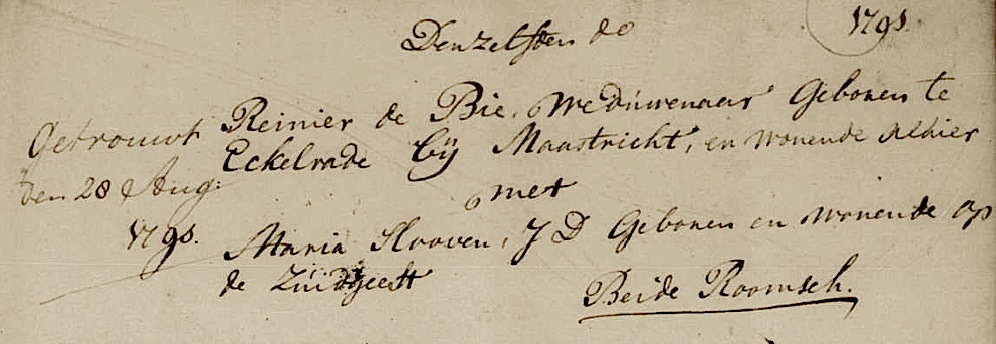 1795.
Denzelfden do
Getrouwt
den 28 Aug:
1795.
Reinier de Bie, Weduwenaar Geboren te
Eckelrade bÿ Maastricht, en wonende Alhier
met
Maria Hooven, J D Geboren en wonende op
de Zuidgeest
Beide Roomsch.